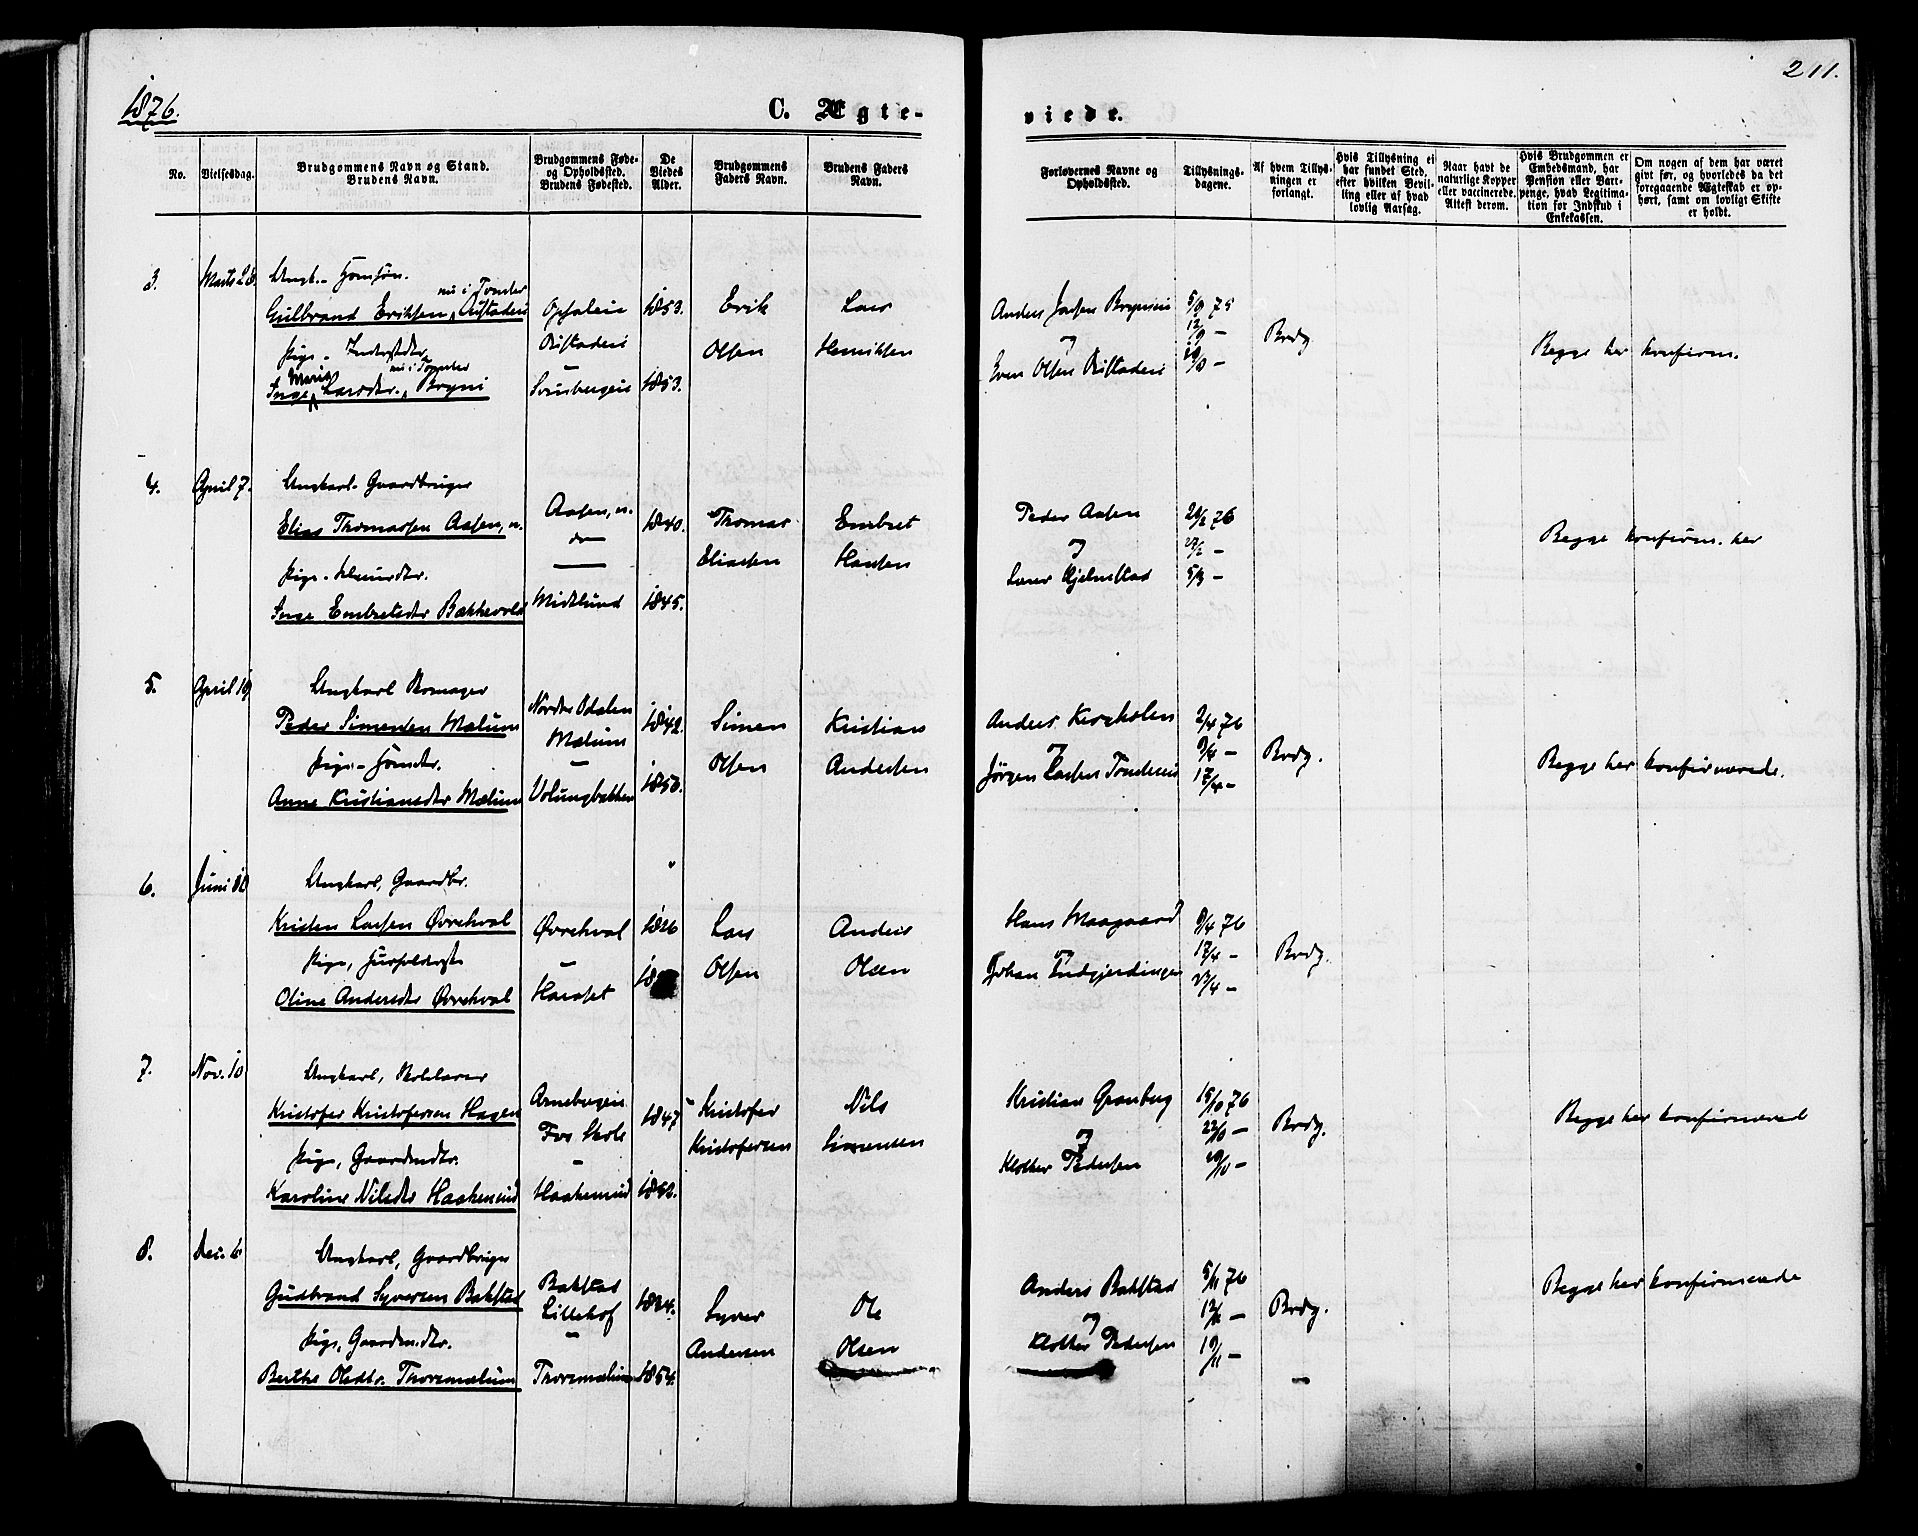 1876.
C. Ægte-
viede.
211.
No.
Vielsesdag.
Brudgommens Navn og Stand.
Brudens Navn.
Brudgommens Føde-
og Opholdssted.
Brudens Fødested.
De
Viedes
Alder.
Brudgommens
Faders Navn.
Brudens Faders
Navn.
Forlovernes Navne og
Opholdssted.
Tillysnings-
dagene.
Af hvem Tillys-
ningen er
forlangt.
Hvis Tillysning ei
har fundet Sted,
efter hvilken Bevil-
ling eller af hvad
lovlig Aarsag.
Naar havt de
naturlige Kopper
eller vaccinerede.
Attest derom.
Hvis Brudgommen er
Embedsmand, har
Pension eller Vart-
penge, hvad Legitima-
tion for Indskud i
Enkekassen.
Om nogen af dem har været
gift før, og hvorledes da det
foregaaende Ægteskab er op-
hørt, samt om lovligt Skifte
er holdt.
3. Marts 28.
Gulbrand Eriksen
1853.
Erik
Olsen
Lars
Henriksen
Larsdtr. Bryni
1853.
Anders
og
Even Olsen
5/9 75
12/9 —
Brdg.
Begge her konfirm.
4. April 7.
Ungkarl. Gaardbruger
Elias Thomassen Aasen, n.
Aasen, n.
do
1840.
Thomas
Eliassen
Embret
Hansen
Inge Embretsdtr Bækkevold
Midtlund
1845.
Peder Aasen
og
Lars Gjelmstad
76
27/2 —
5/3 —
Begge konfirm. her
5. April 19
Ungkarl Skomager
Peder Simensen Mælum
Nordre Odalen
Mælum
1842.
Simen
Olsen
Kristian
Andersen
Anne Kristiansdtr Mælum
Volungbakken
1850.
Anders Kirkholen
og
Jørgen Larsen
2/4 76
9/4 —
17/4 —
Brdg.
Begge her konfirmerede.
6. Juni
Ungkarl, Gaardbr.
Kristen Larsen Øvrehval
Øvrehval
1826
Lars
Olsen
Anders
Olsen
Pige,
Oline Andersdtr Øvrehval
Haraset
18
Hans Maagaard
og
Johan
9/4 76
17/4 —
23/4 —
Brdg.
7. Nov. 10
Ungkarl, Skolelærer
Kristofer Kristofersen Hagen
Arnebergeie
Fos Skole
1847
Kristofer
Kristofersen
Nils
Simensen
Pige, Gaardmdtr.
Karoline Nilsdtr Haakenrud
Haakenrud
1852.
Kristian Granberg
og
Klokker Pedersen
15/10 76
22/10 —
29/10 —
Brdg.
Begge her konfirmered
8. Dec. 6
Ungkarl, Gaardbruger
Gudbrand Syversen Bakstad
Bakstad
Lillehof
1834.
Syver
Andersen
Ole
Olsen
Pige, Gaardmdtr.
Berthe Olsdtr. Thorsmælum
Thorsmælum
1854.
Anders Bakstad
og
Klokker Pedersen
5/11 76
12/11 —
19/11 —
Brdg.
Begge her konfirmerede